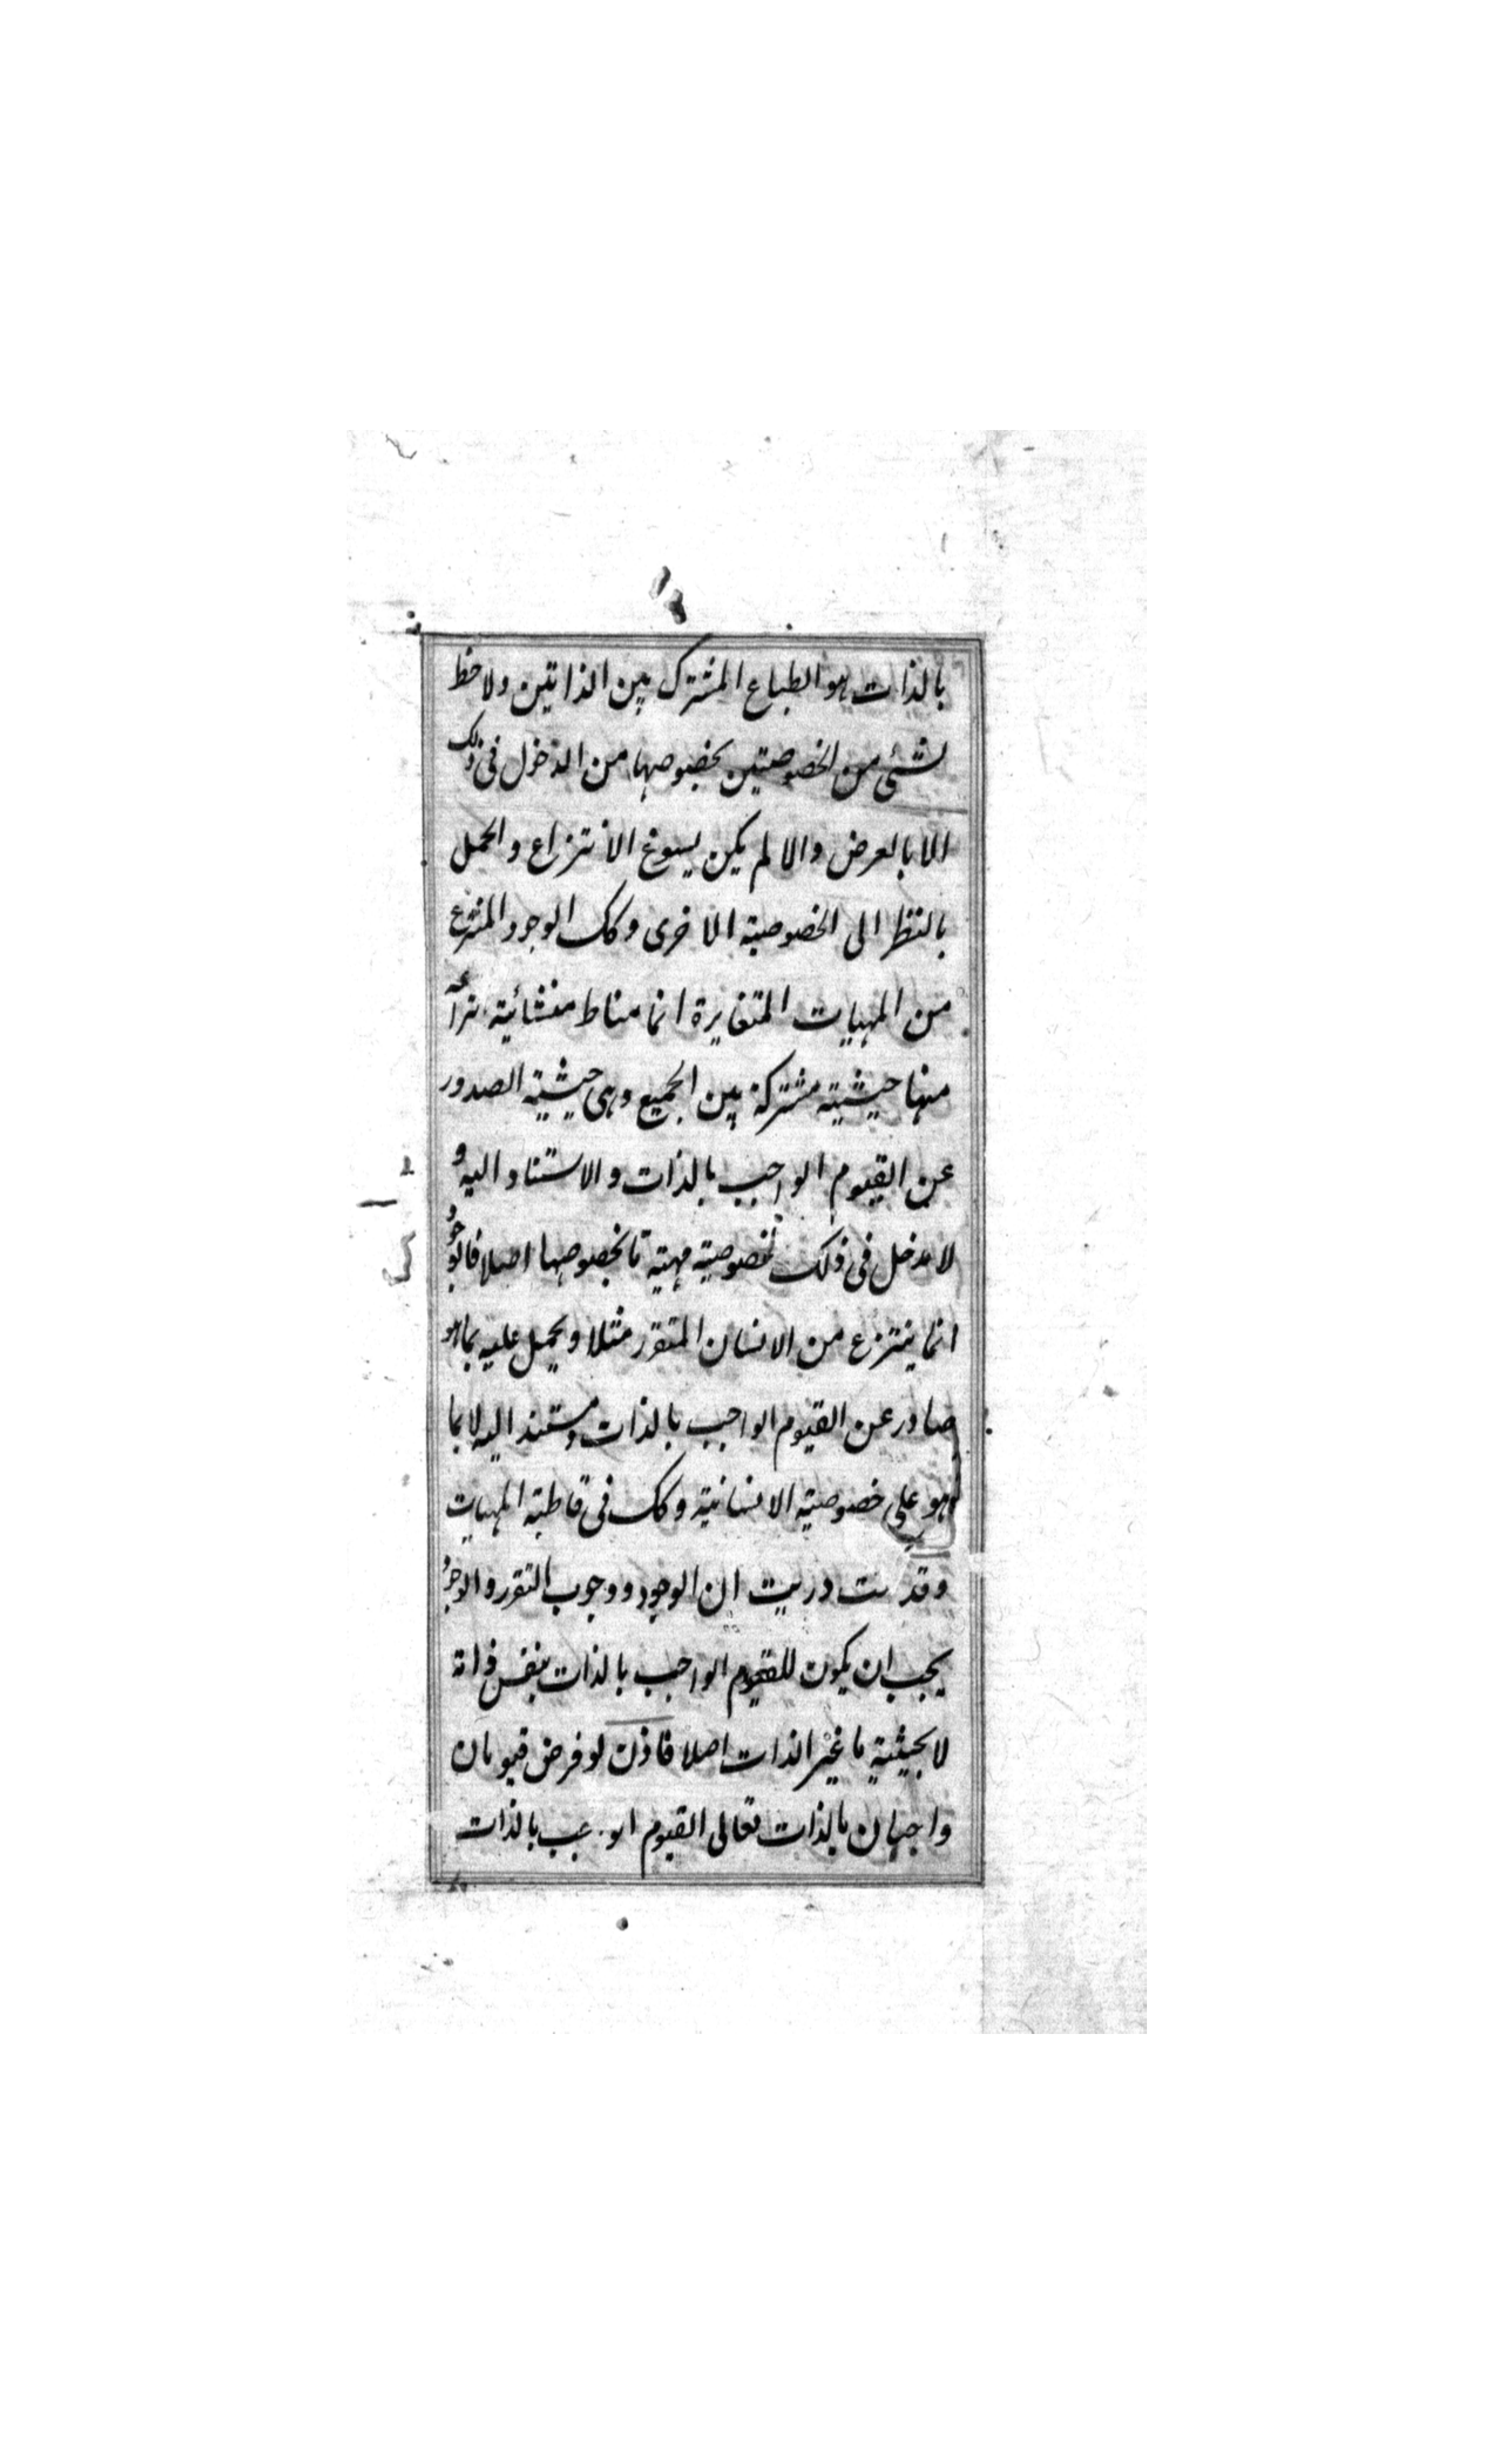 بالذات هو الطباع المشترك بين الذاتين ولا حظ
لشئ من الخصوصيتين بخصوصها من الدخول فى ذلك
الا بالعرض والا لم يكن يسوغ الانتزاع والحمل
بالنظر الى الخصوصية الاخرى وكك الوجود المنتزع
من المهيات المتغايرة انما مناط منشائية
منها حيثية مشتركة بين الجميع وهى حيثية الصدور
عن القيوم الواجب بالذات والاستناد اليه و
لا مدخل فى ذلك لخصوصية مهية ما بخصوصها اصلا فالوجود
انما ينتزع من الانسان المتقرر مثلا ويحمل عليه بما هو
صادر عن القيوم الواجب بالذات ومستند اليه لا بما
هو على خصوصية الانسانية وكك فى قاطبة المهيات
وقد دريت ان الوجود ووجوب التقرر والوجود
يجب ان يكون للقيوم الواجب بالذات بنفس ذاته
لا بحيثية ما غير الذات اصلا فاذن لو فرض قيومان
واجبان بالذات تعالى القيوم الواجب بالذات